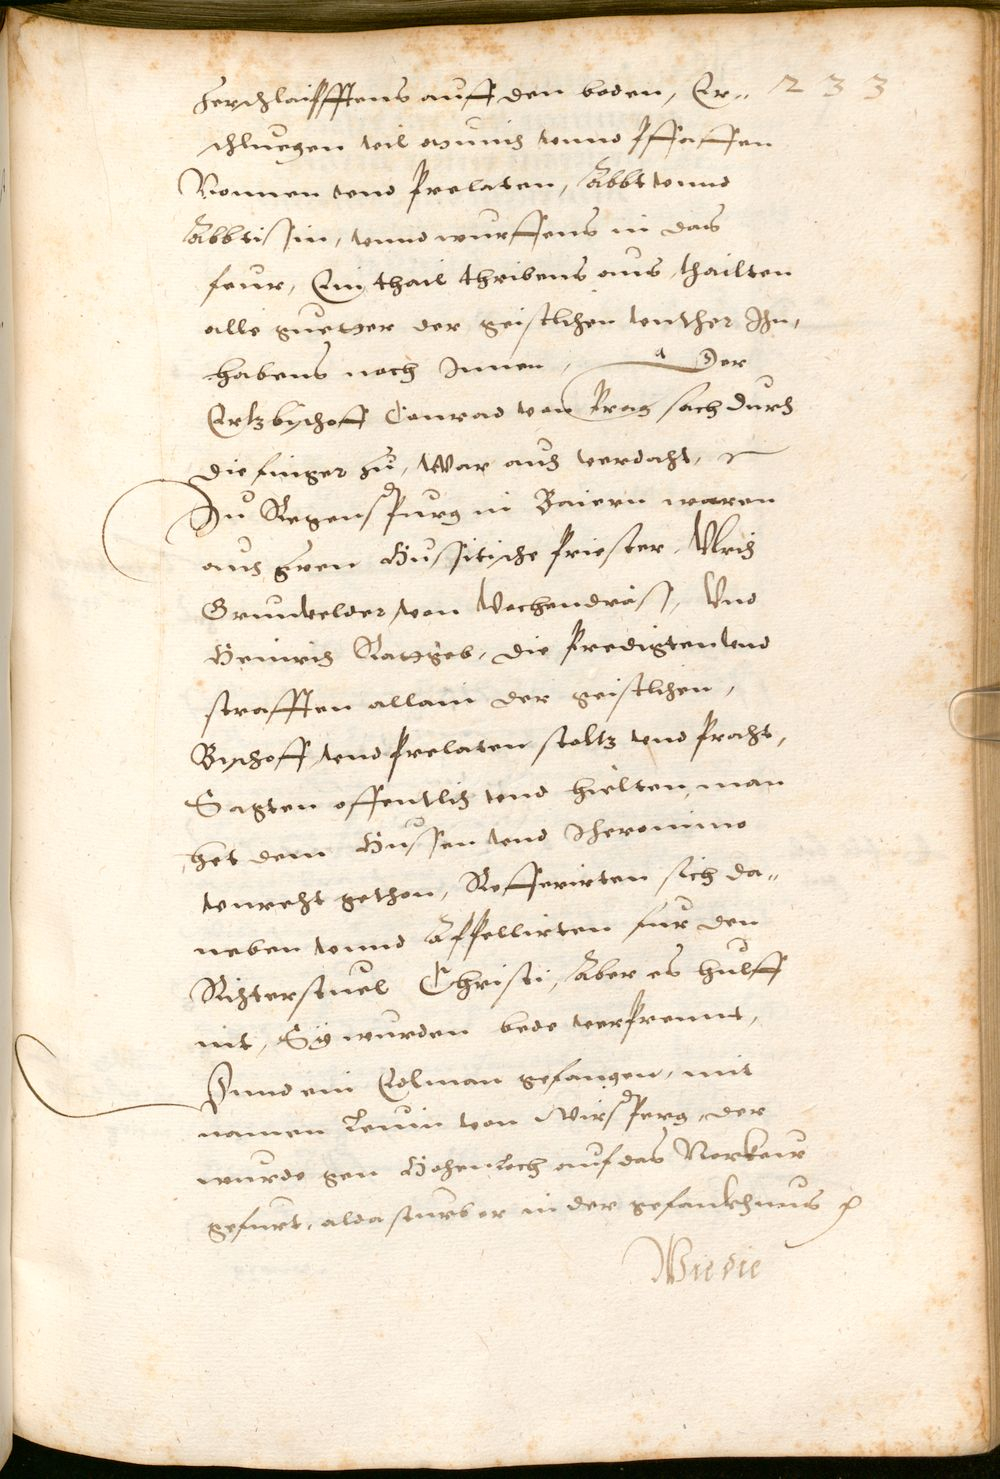 Zerschlaipfftens auff den boden, Er= 233
schluegen vil münich vnnd Pfaffen
Nonnen vnd Prelaten, Äbbt vnnd
Äbbtissin, vnnd wurffens in das
feur, Ein thail thribens aus, thailten
alle guetter der geistlichen vnther Ihn,
habens noch Innen, Der
Ertzbischoff Conrad von Prag sach durch
die finger zu, War auch verdacht,
Zu Regenspurg in Baiern waren
auch zwen Hussitische Priester, Vlrich
Grunvelder von Vochendräss, Vnd
Heinrich Ratgeb, die Predigten vnd
strafften allain der geistlichen,
Bischoff vnd Prelaten stoltz vnd Pracht,
Sagten offentlich vnd hielten man
het dem Hussen vnd Iheronimo
vnrecht gethon, Refferirten sich da=
neben vnnd Appellirten fur den
Richterstuel Christi, Aber es hulff
nit, Sÿ wurden bede verprennt,
Vnnd ein Edlman gefangen, mit
namen Leuin von Wirsperg, der
wurde gen Hohenloch auf das Norkeur
gefurt, alda sturb er in der gefanckhnus
Wie die